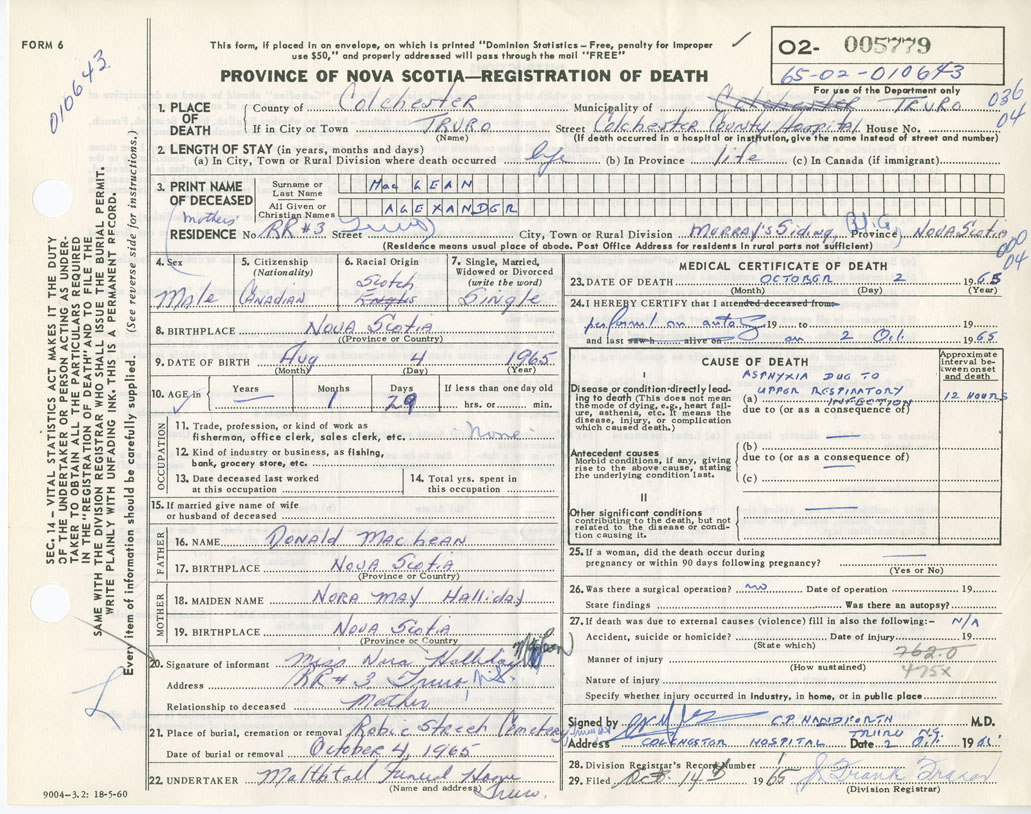 FORM 6
010643.
This form, if placed in an envelope, on which is printed "Dominion Statistics – Free, penalty for improper
use $50," and properly addressed will pass through the mail "FREE"
✓
02- 005779
65-02-010643
For use of the Department only
036
04
PROVINCE OF NOVA SCOTIA—REGISTRATION OF DEATH
1. PLACE OF DEATH
County of Colchester Municipality of Colchester TRURO
If in City or Town TRURO Street Colchester County Hospital House No.
(Name) (If death occurred in hospital or institution, give the name instead of street and number)
2. LENGTH OF STAY (in years, months and days)
(a) In City, Town or Rural Division where death occurred life (b) In Province life (c) In Canada (if immigrant)
3. PRINT NAME OF DECEASED
Surname or Last Name Mac LEAN
All Given or Christian Names ALEXANDER
Mothers'
RESIDENCE No. RR #3 Street Truro City, Town or Rural Division MURRAY'S Siding Province NOVA Scotia
(Residence means usual place of abode. Post Office Address for residents in rural parts not sufficient)
000
04
4. Sex
Male
5. Citizenship
(Nationality)
CANADIAN
6. Racial Origin
Scotch
7. Single, Married,
Widowed or Divorced
(write the word)
Single
8. BIRTHPLACE NOVA Scotia
(Province or Country)
9. DATE OF BIRTH Aug 4 1965
(Month) (Day) (Year)
10. AGE in
Years Months Days If less than one day old
— 1 29 hrs. or min.
OCCUPATION
11. Trade, profession, or kind of work as
fisherman, office clerk, sales clerk, etc. None
12. Kind of industry or business, as fishing,
bank, grocery store, etc.
13. Date deceased last worked
at this occupation
14. Total yrs. spent in
this occupation
15. If married give name of wife
or husband of deceased
FATHER
16. NAME Donald MacLean
17. BIRTHPLACE NOVA Scotia
(Province or Country)
MOTHER
18. MAIDEN NAME NORA MAY Halliday
19. BIRTHPLACE NOVA Scotia
(Province or Country)
20. Signature of informant Miss Nora Halliday
Address RR # 3 Truro N.S.
Relationship to deceased Mother
21. Place of burial, cremation or removal Robie Street Cemetery Truro
Date of burial or removal October 4, 1965
22. UNDERTAKER Funeral Home
(Name and address) Truro.
9004-3.2: 18-5-60
SEC. 14 – VITAL STATISTICS ACT MAKES IT THE DUTY
OF THE UNDERTAKER OR PERSON ACTING AS UNDER-
TAKER TO OBTAIN ALL THE PARTICULARS REQUIRED
IN THE "REGISTRATION OF DEATH" AND TO FILE THE
SAME WITH THE DIVISION REGISTRAR WHO SHALL ISSUE THE BURIAL PERMIT.
WRITE PLAINLY WITH UNFADING INK. THIS IS A PERMANENT RECORD.
Every item of information should be carefully supplied. (See reverse side for instructions.)
MEDICAL CERTIFICATE OF DEATH
23. DATE OF DEATH OCTOBER 2 1965
(Month) (Day) (Year)
24. I HEREBY CERTIFY that I attended deceased from
performed an 19 to 19
and last saw h alive on on 2 Oct. 1965
CAUSE OF DEATH
Approximate
interval be-
tween onset
and death
I
Disease or condition directly lead-
ing to death (This does not mean
the mode of dying, e.g., heart fail-
ure, asthenia, etc. It means the
disease, injury, or complication
which caused death.)
ASPHYXIA DUE TO
(a) UPPER RESPIRATORY INFECTION 12 HOURS
due to (or as a consequence of)
Antecedent causes
Morbid conditions, if any, giving
rise to the above cause, stating
the underlying condition last.
(b) —
due to (or as a consequence of)
(c) —
II
Other significant conditions
contributing to the death, but not
related to the disease or condi-
tion causing it.
25. If a woman, did the death occur during
pregnancy or within 90 days following pregnancy? —
(Yes or No)
26. Was there a surgical operation? no Date of operation 19
State findings Was there an autopsy?
27. If death was due to external causes (violence) fill in also the following:– N/A
Accident, suicide or homicide? Date of injury 19
(State which)
762.0
Manner of injury
(How sustained)
475X
Nature of injury
Specify whether injury occurred in industry, in home, or in public place
Signed by C.P. HANDFORTH M.D.
TRURO N.S.
Address COLCHESTER HOSPITAL Date 2 Oct. 19
28. Division Registrar's Record Number
29. Filed Oct 14th 1965 J. Frank Fraser
(Division Registrar)